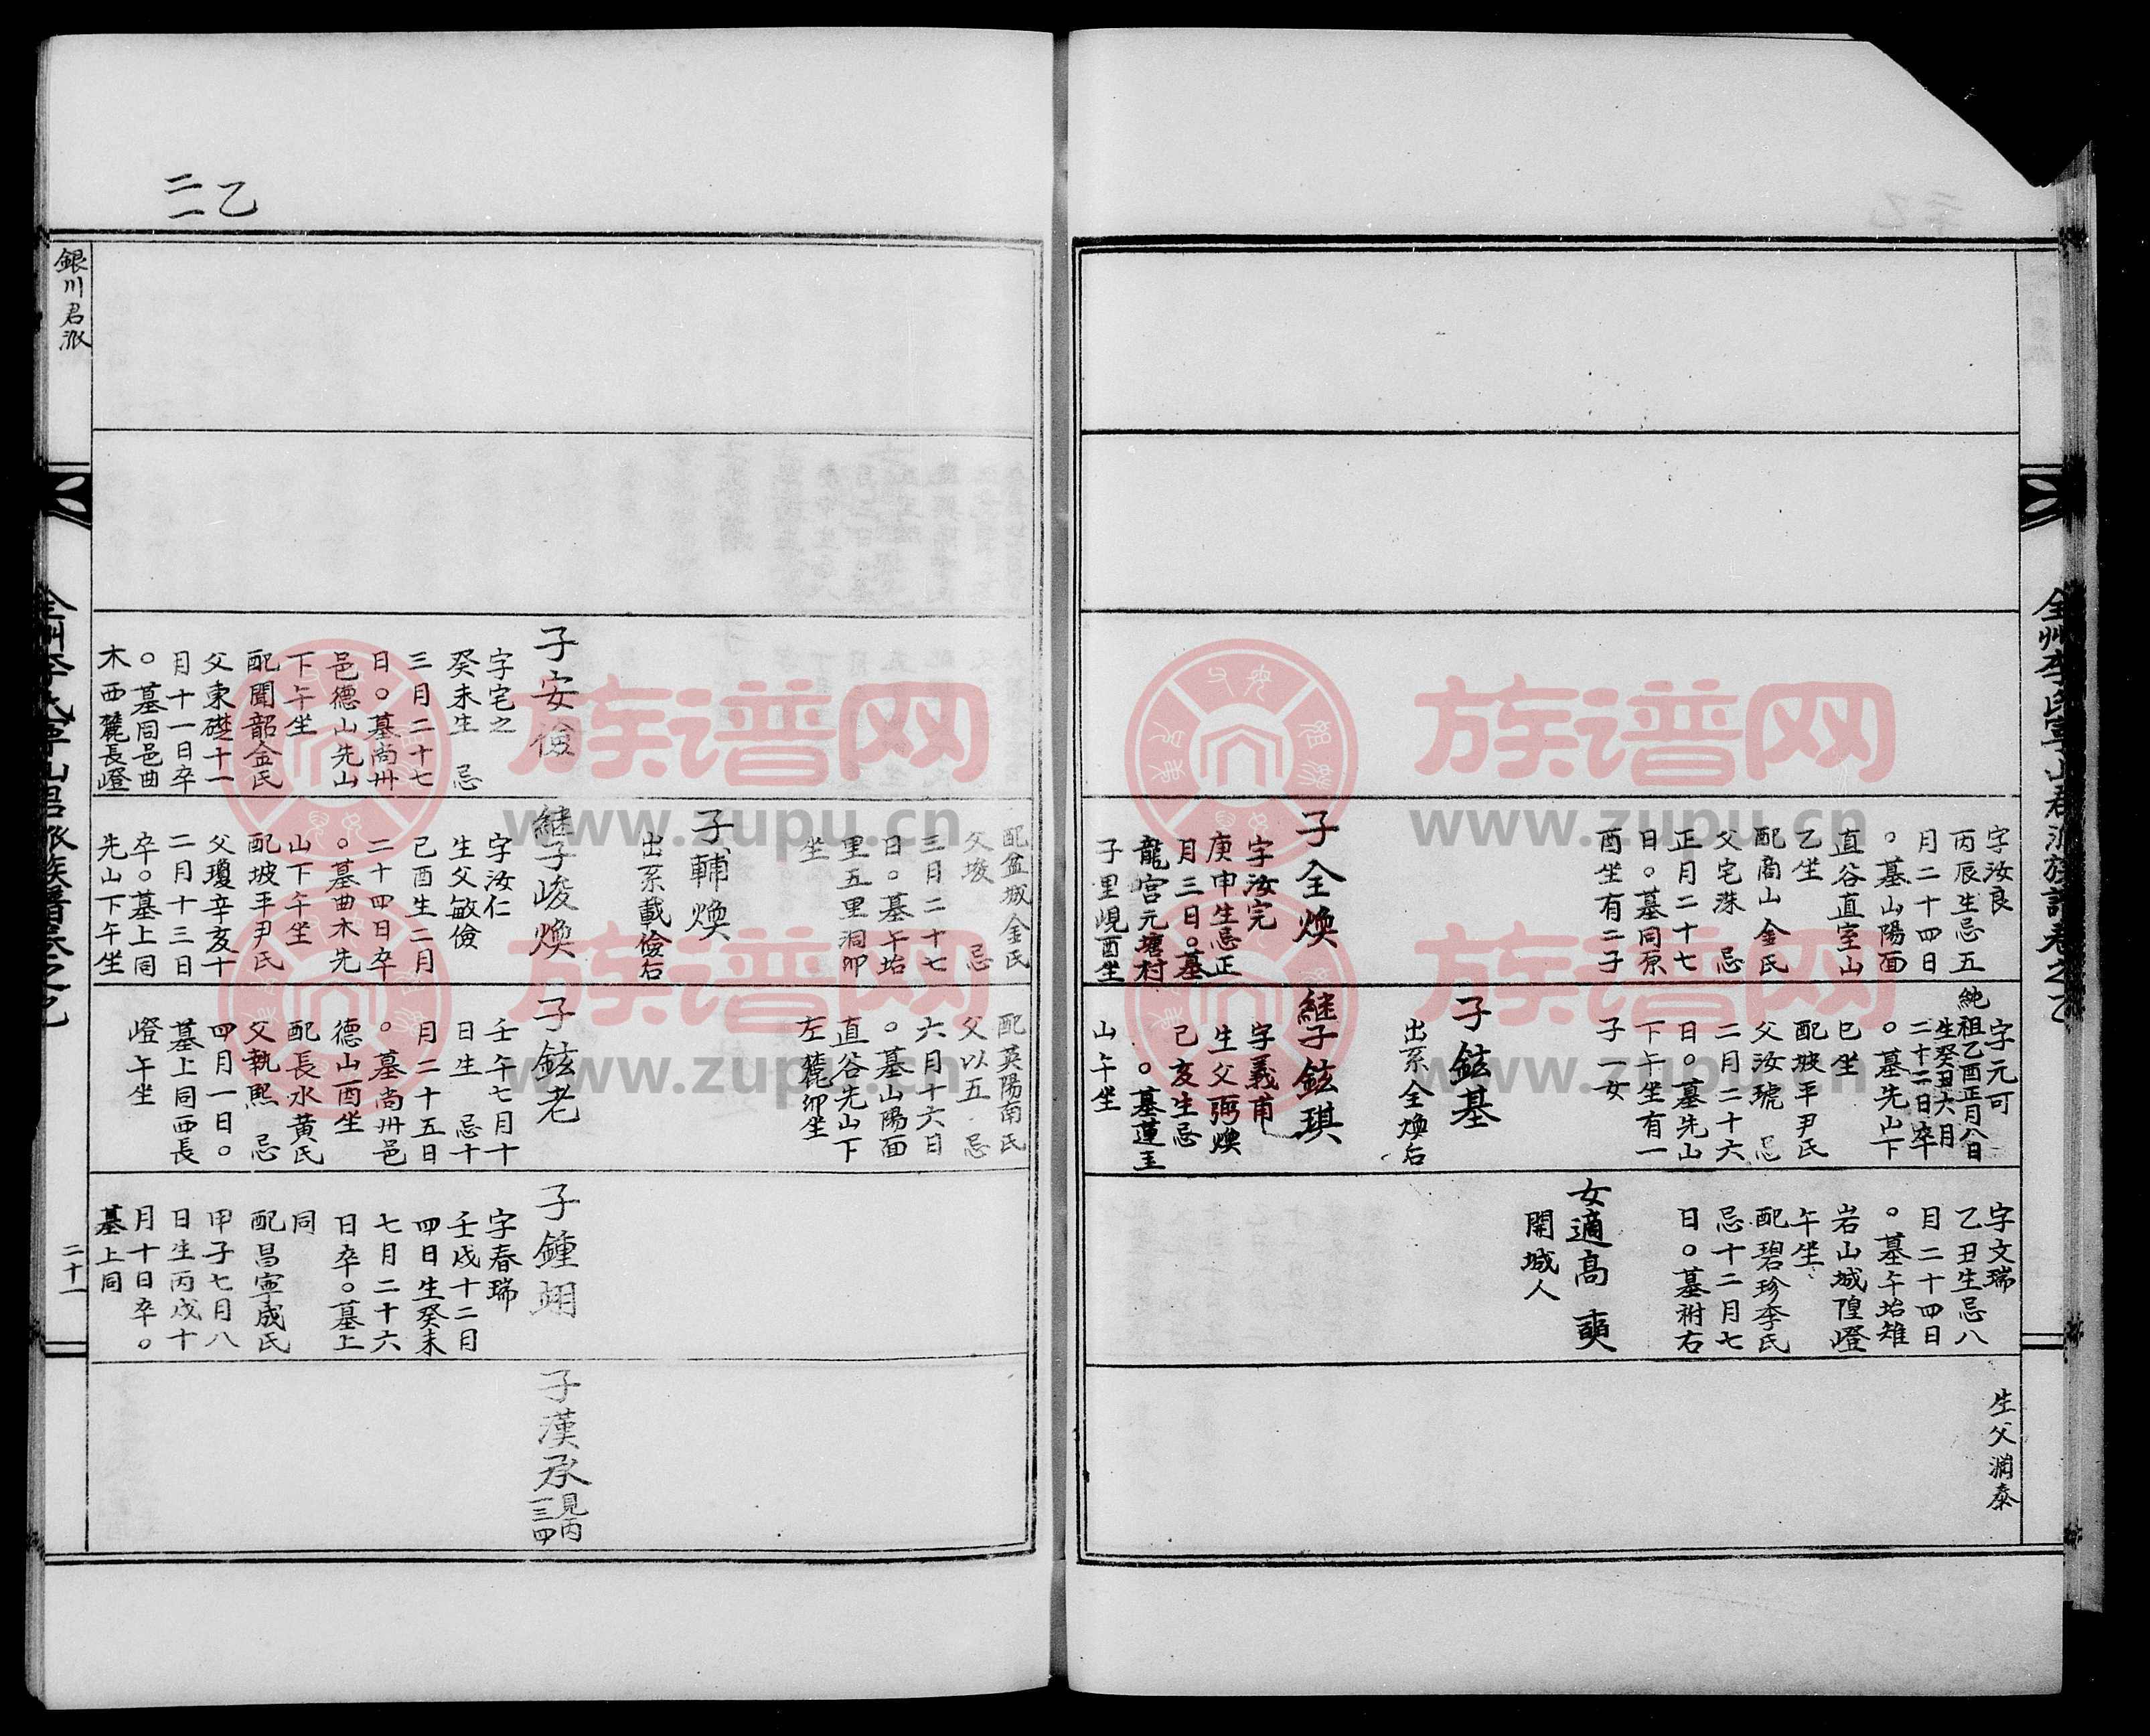 全州李氏寧山君派族譜卷之乙
字汝良
丙辰生忌五
月二十四日
○墓山陽面
直谷直室山
乙坐
配商山金氏
父宅洙 忌
正月二十七
日○墓同原
酉坐有二子
子全煥
字汝完
庚申生忌正
月三日○墓
龍宮元塘村
子里峴酉坐
字元可
純祖乙酉正月八日
生癸丑六月
二十二日卒
○墓先山下
巳坐
配坡平尹氏
父汝琥 忌
二月二十六
日○墓先山
下午坐有一
子一女
子鉉基
出系全煥后
繼子鉉琪
字義甫
生父弼煥
己亥生忌
○墓蓮玉
山午坐
字文瑞
乙丑生忌八
月二十四日
○墓午坮雉
岩山城隍嶝
午坐
配碧珍李氏
忌十二月七
日○墓祔右
女適高 奭
開城人
生父潤泰
乙
二一
配盆城金氏
父埈 忌
三月二十七
日○墓午坮
里五里洞卯
坐
子輔煥
出系載儉后
配英陽南氏
父以五 忌
六月十六日
○墓山陽面
直谷先山下
左麓卯坐
子安儉
字宅之
癸未生 忌
三月二十七
日○墓尚州
邑德山先山
下午坐
配聞韶金氏
父東礎十一
月十一日卒
○墓同邑曲
木西麓長嶝
繼子峻煥
字汝仁
生父敏儉
己酉生二月
二十四日卒
○墓曲木先
山下午坐
配坡平尹氏
父瓊辛亥十
二月十三日
卒○墓上同
先山下午坐
子鉉老
壬午七月十
日生 忌十
月二十五日
○墓尚州邑
德山酉坐
配長水黃氏
父執熙 忌
四月一日○
墓上同西長
嶝午坐
子鍾翊
字春瑞
壬戌十二月
四日生癸未
七月二十六
日卒○墓上
同
配昌寧成氏
甲子七月八
日生丙戌十
月十日卒○
墓上同
子漢承
見丙
一三四
銀川君派
二十一
族谱网
www.zupu.cn
族谱网
www.zupu.cn
族谱网
www.zupu.cn
族谱网
www.zupu.cn